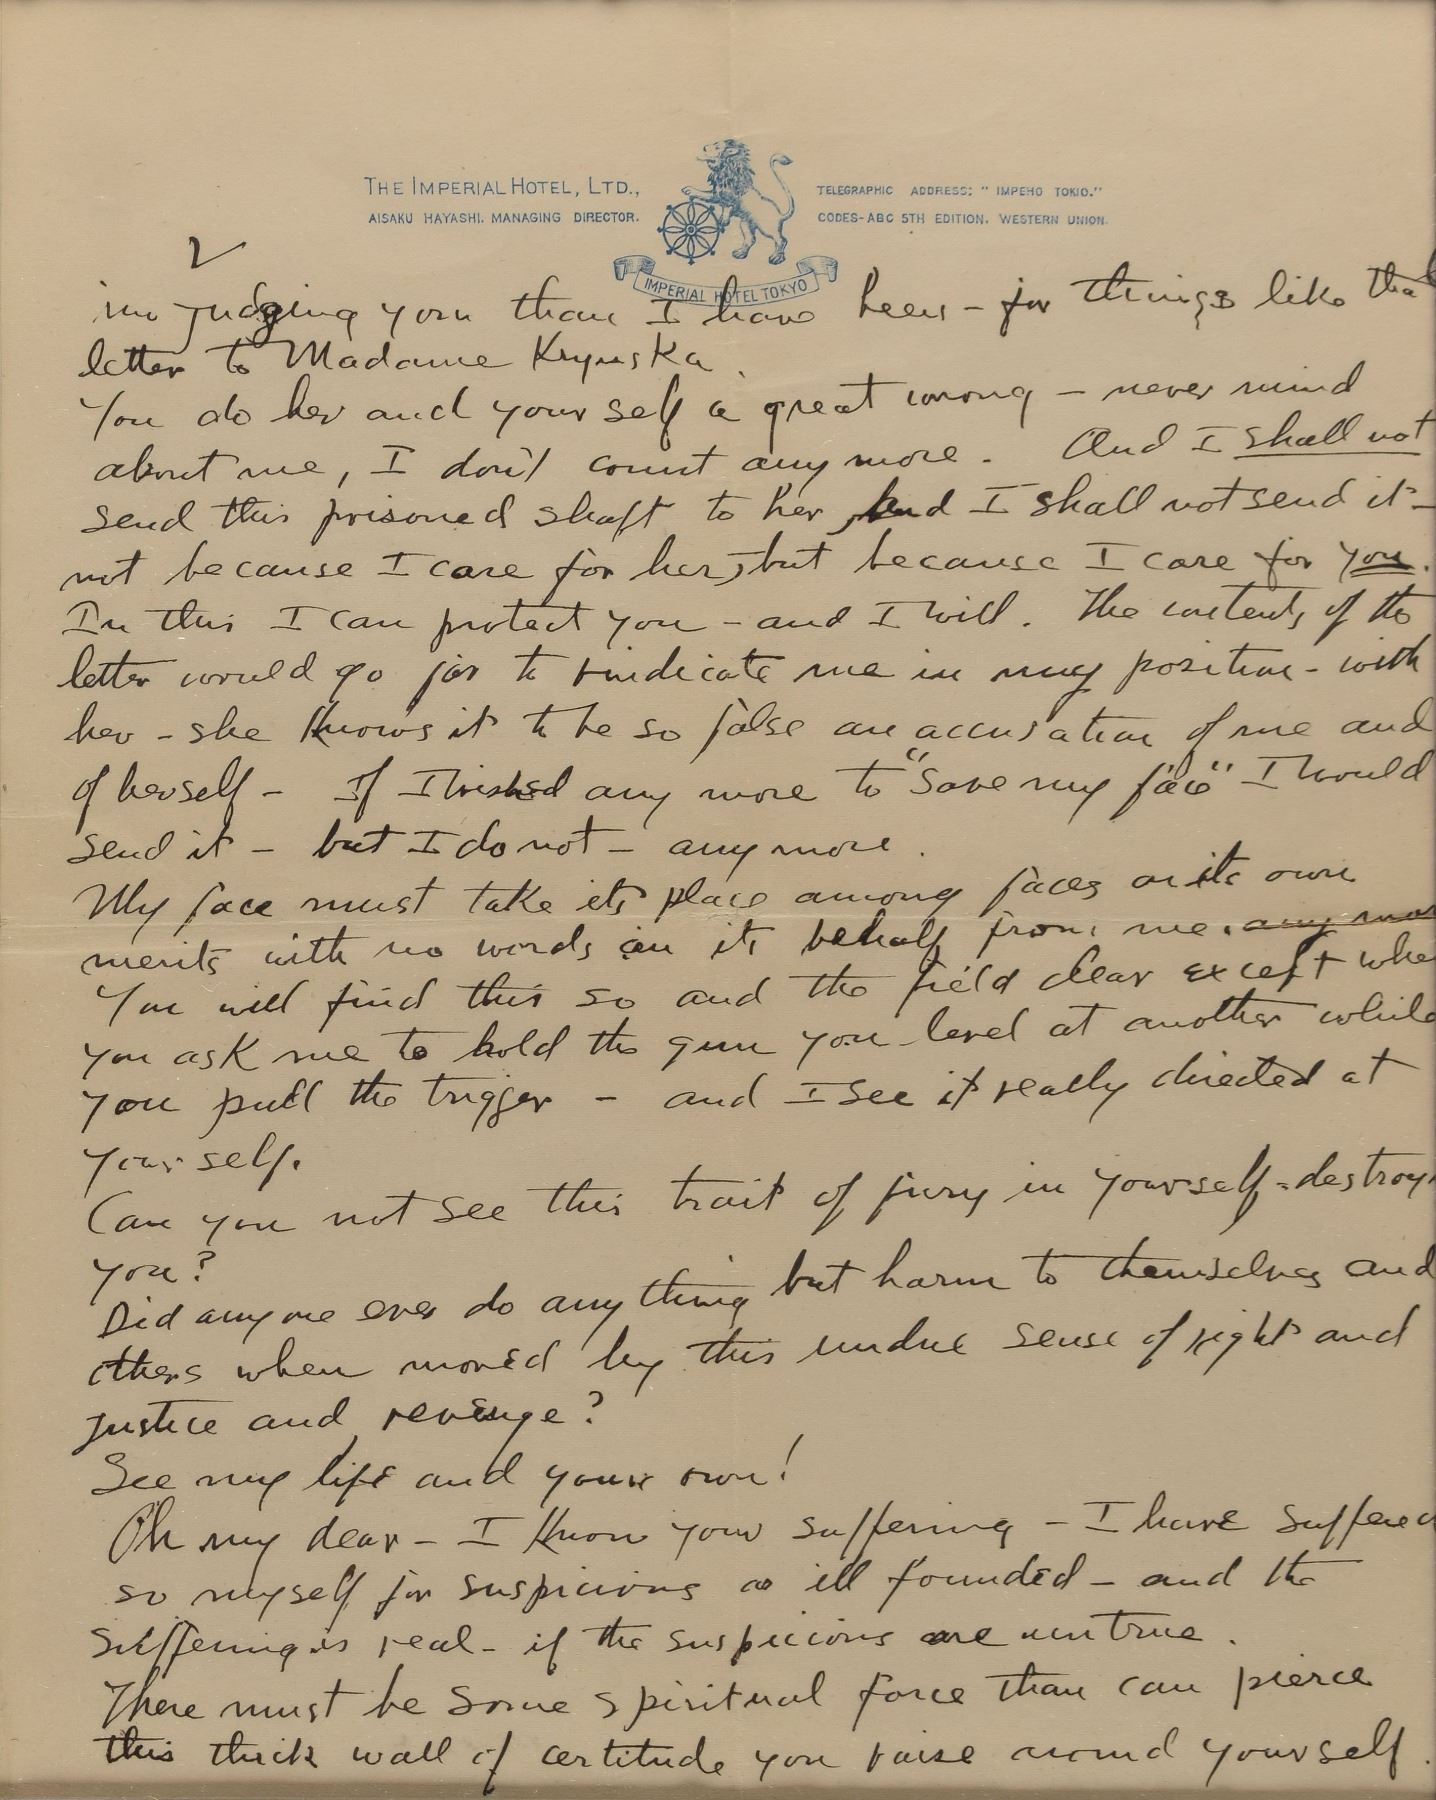 THE IMPERIAL HOTEL, LTD.,
AISAKU HAYASHI. MANAGING DIRECTOR.
TELEGRAPHIC ADDRESS: "IMPEHO TOKIO."
CODES-ABC 5TH EDITION. WESTERN UNION.
IMPERIAL HOTEL TOKYO
2
in judging you than I have been - for things like that
letter to Madame Krynska.
You do her and yourself a great wrong - never mind
about me, I don't count any more. And I shall not
send this poisoned shaft to her, and I shall not send it -
not because I care for her, but because I care for you.
In this I can protect you - and I will. The contents of the
letter would go far to vindicate me in my position - with
her - she knows it to be so false an accusation of me and
of herself - If I wished any more to "save my face" I would
send it - but I do not - any more.
My face must take its place among faces on its own
merits with no words in its behalf from me. any mor
You will find this so and the field clear except whe
you ask me to hold the gun you level at another while
you pull the trigger - and I see it really directed at
yourself.
Can you not see this trait of fury in yourself - destroys
you?
Did anyone ever do anything but harm to themselves and
others when moved by this undue sense of right and
justice and revenge?
See my life and your own!
Oh my dear - I know your suffering - I have suffered
so myself for suspicions as ill founded - and the
suffering is real - if the suspicions are untrue.
There must be some spiritual force than can pierce
this thick wall of certitude you raise around yourself.